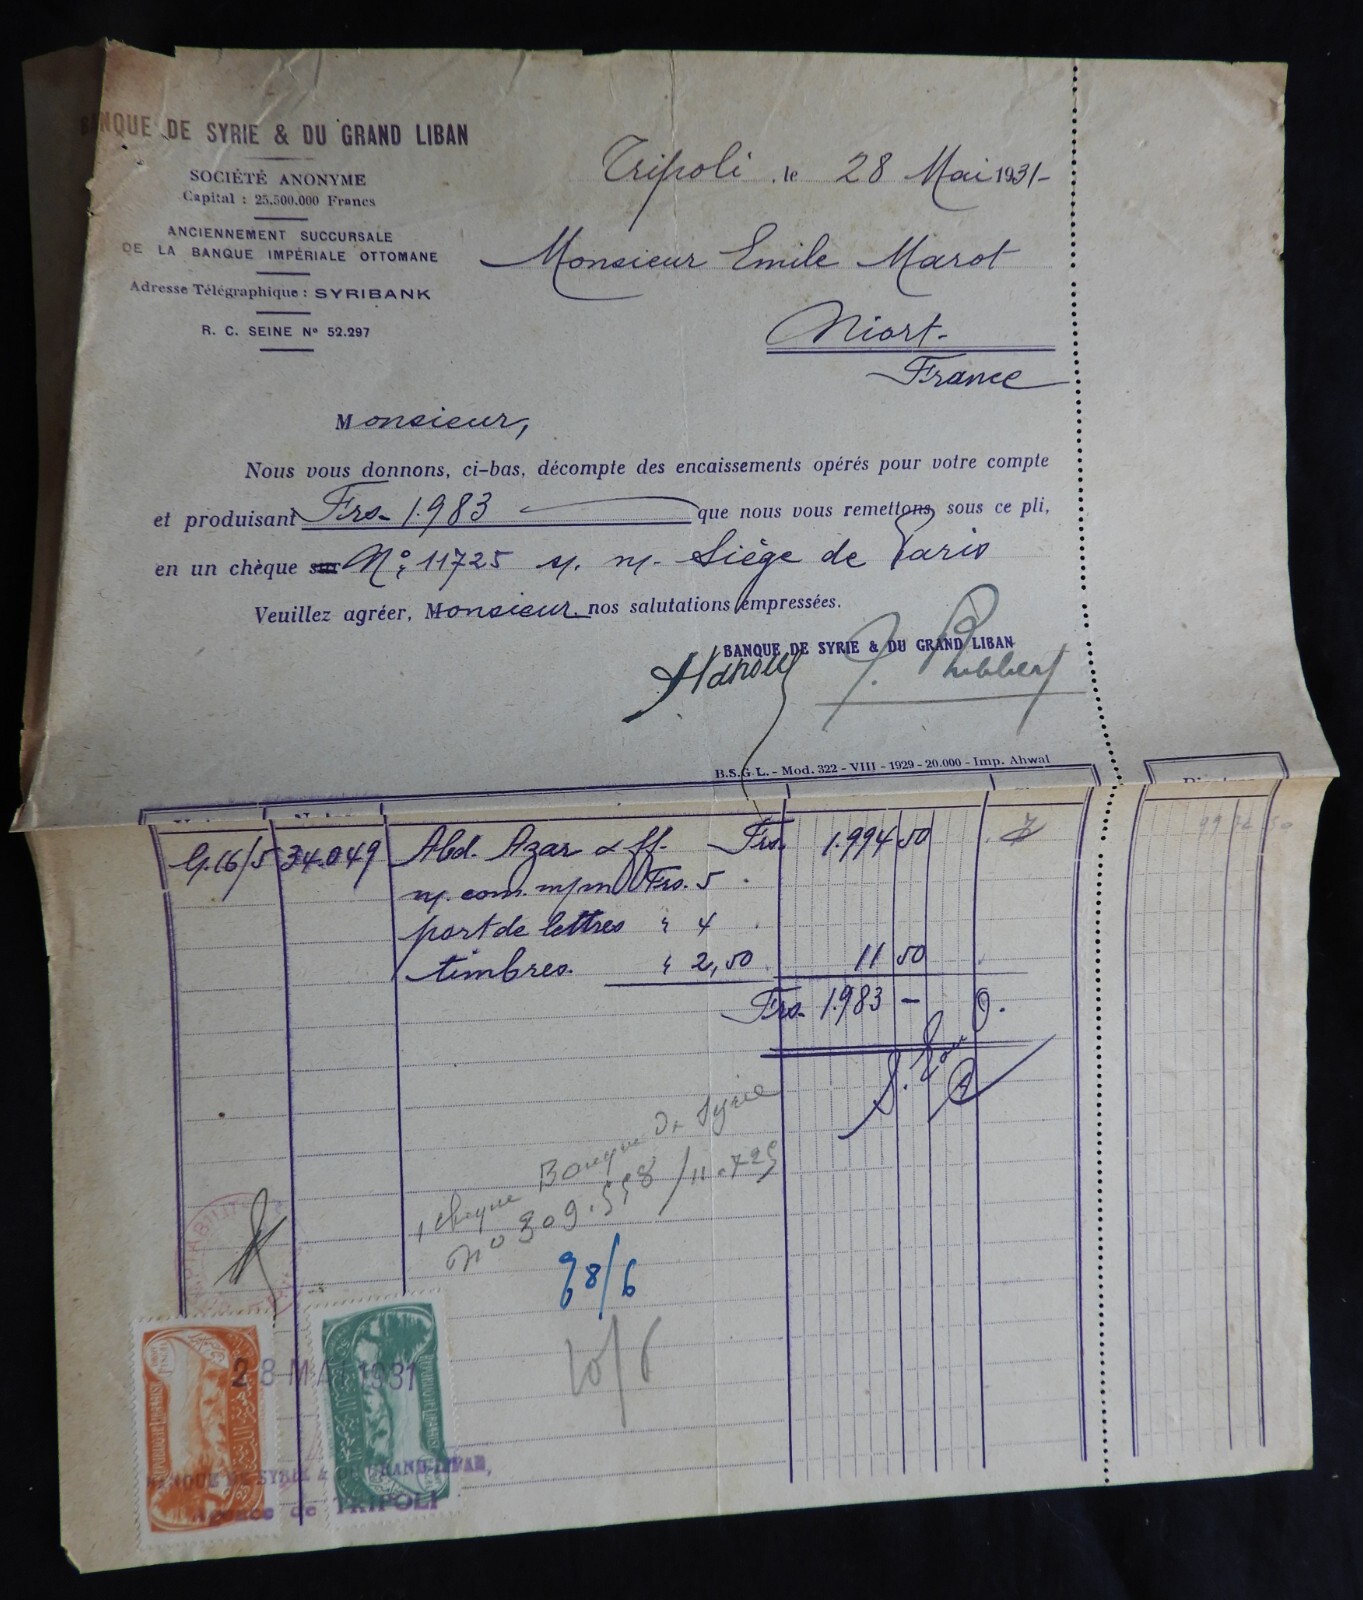 BANQUE DE SYRIE & DU GRAND LIBAN
SOCIÉTÉ ANONYME
Capital : 25.500.000 Francs
ANCIENNEMENT SUCCURSALE
DE LA BANQUE IMPÉRIALE OTTOMANE
Adresse Télégraphique : SYRIBANK
R. C. SEINE Nº 52.297
Tripoli, le 28 Mai 1931-
Monsieur Emile Marot
Niort-
France
Monsieur,
Nous vous donnons, ci-bas, décompte des encaissements opérés pour votre compte
et produisant Frs- 1.983 que nous vous remettons sous ce pli,
en un chèque sur Nº 11725 s/. n/- Siège de Paris
Veuillez agréer, Monsieur nos salutations empressées.
BANQUE DE SYRIE & DU GRAND LIBAN
B.S.G.L. - Mod. 322 - VIII - 1929 - 20.000 - Imp. Ahwal
16/5 34.049 Abd. Azar & ff. Frs. 1.994 50
n/. com. Frs. 5
port de lettres " 4
timbres. " 2,50 11 50
Frs. 1.983 -
1 cheque Banque de Syrie
nº 309.558 / 11.725
10/6
28 MAI 1931
REPUBLIQUE LIBANAISE
REPUBLIQUE LIBANAISE
BANQUE DE SYRIE & DU GRAND LIBAN,
Agence de TRIPOLI